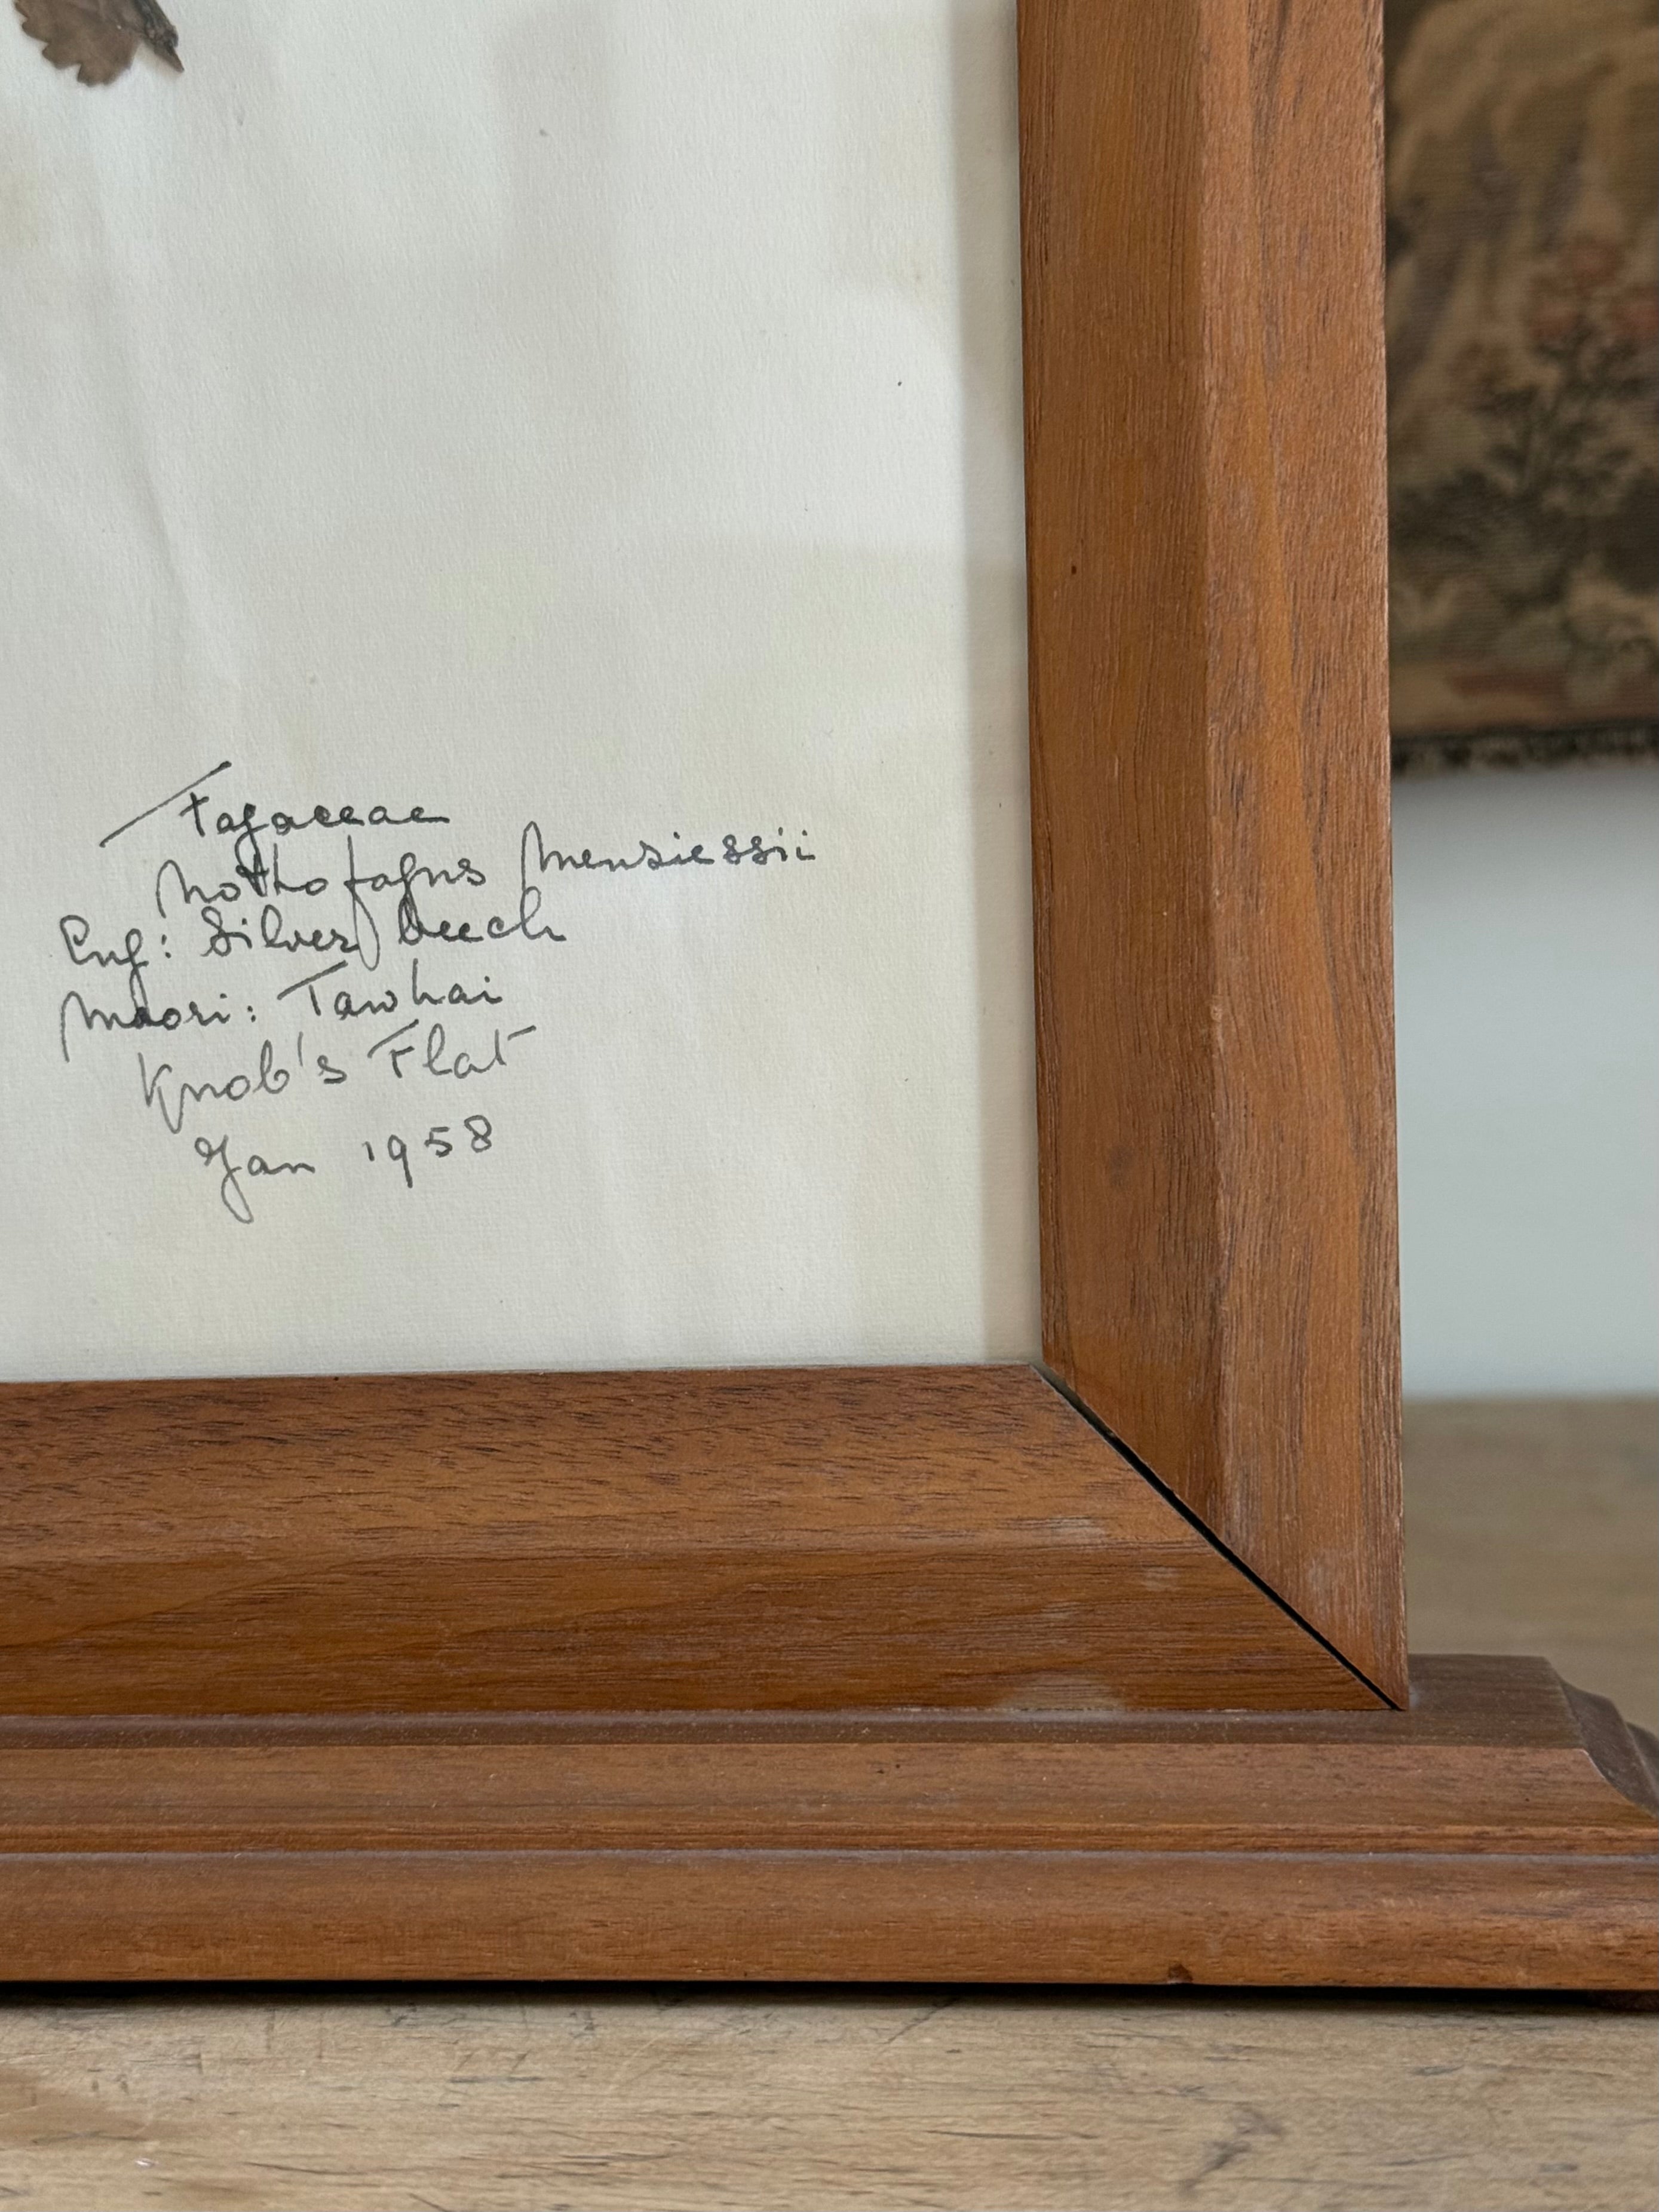 Fagaceae
Nothofagus Mensiessii
Eng: Silver beech
Maori: Tawhai
Knob's Flat
Jan 1958